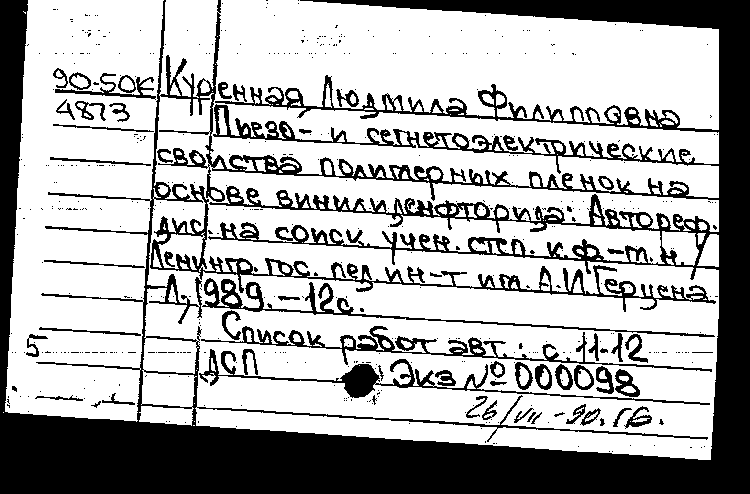 90-50К Куренная Людмила Филипповна
4873 Пьезо- и сегнетоэлектрические
свойства полимерных пленок на
основе винилиденфторида: Автореф.
дис. на соиск. учен. степ. к.ф-т.н. /
Ленингр. гос. пед. ин-т им. А.И. Герцена.
-Л., 1989. - 12с.
Список работ авт.: с. 11-12
5
ДСП Экз № 000098
26/VII -90. ГБ.